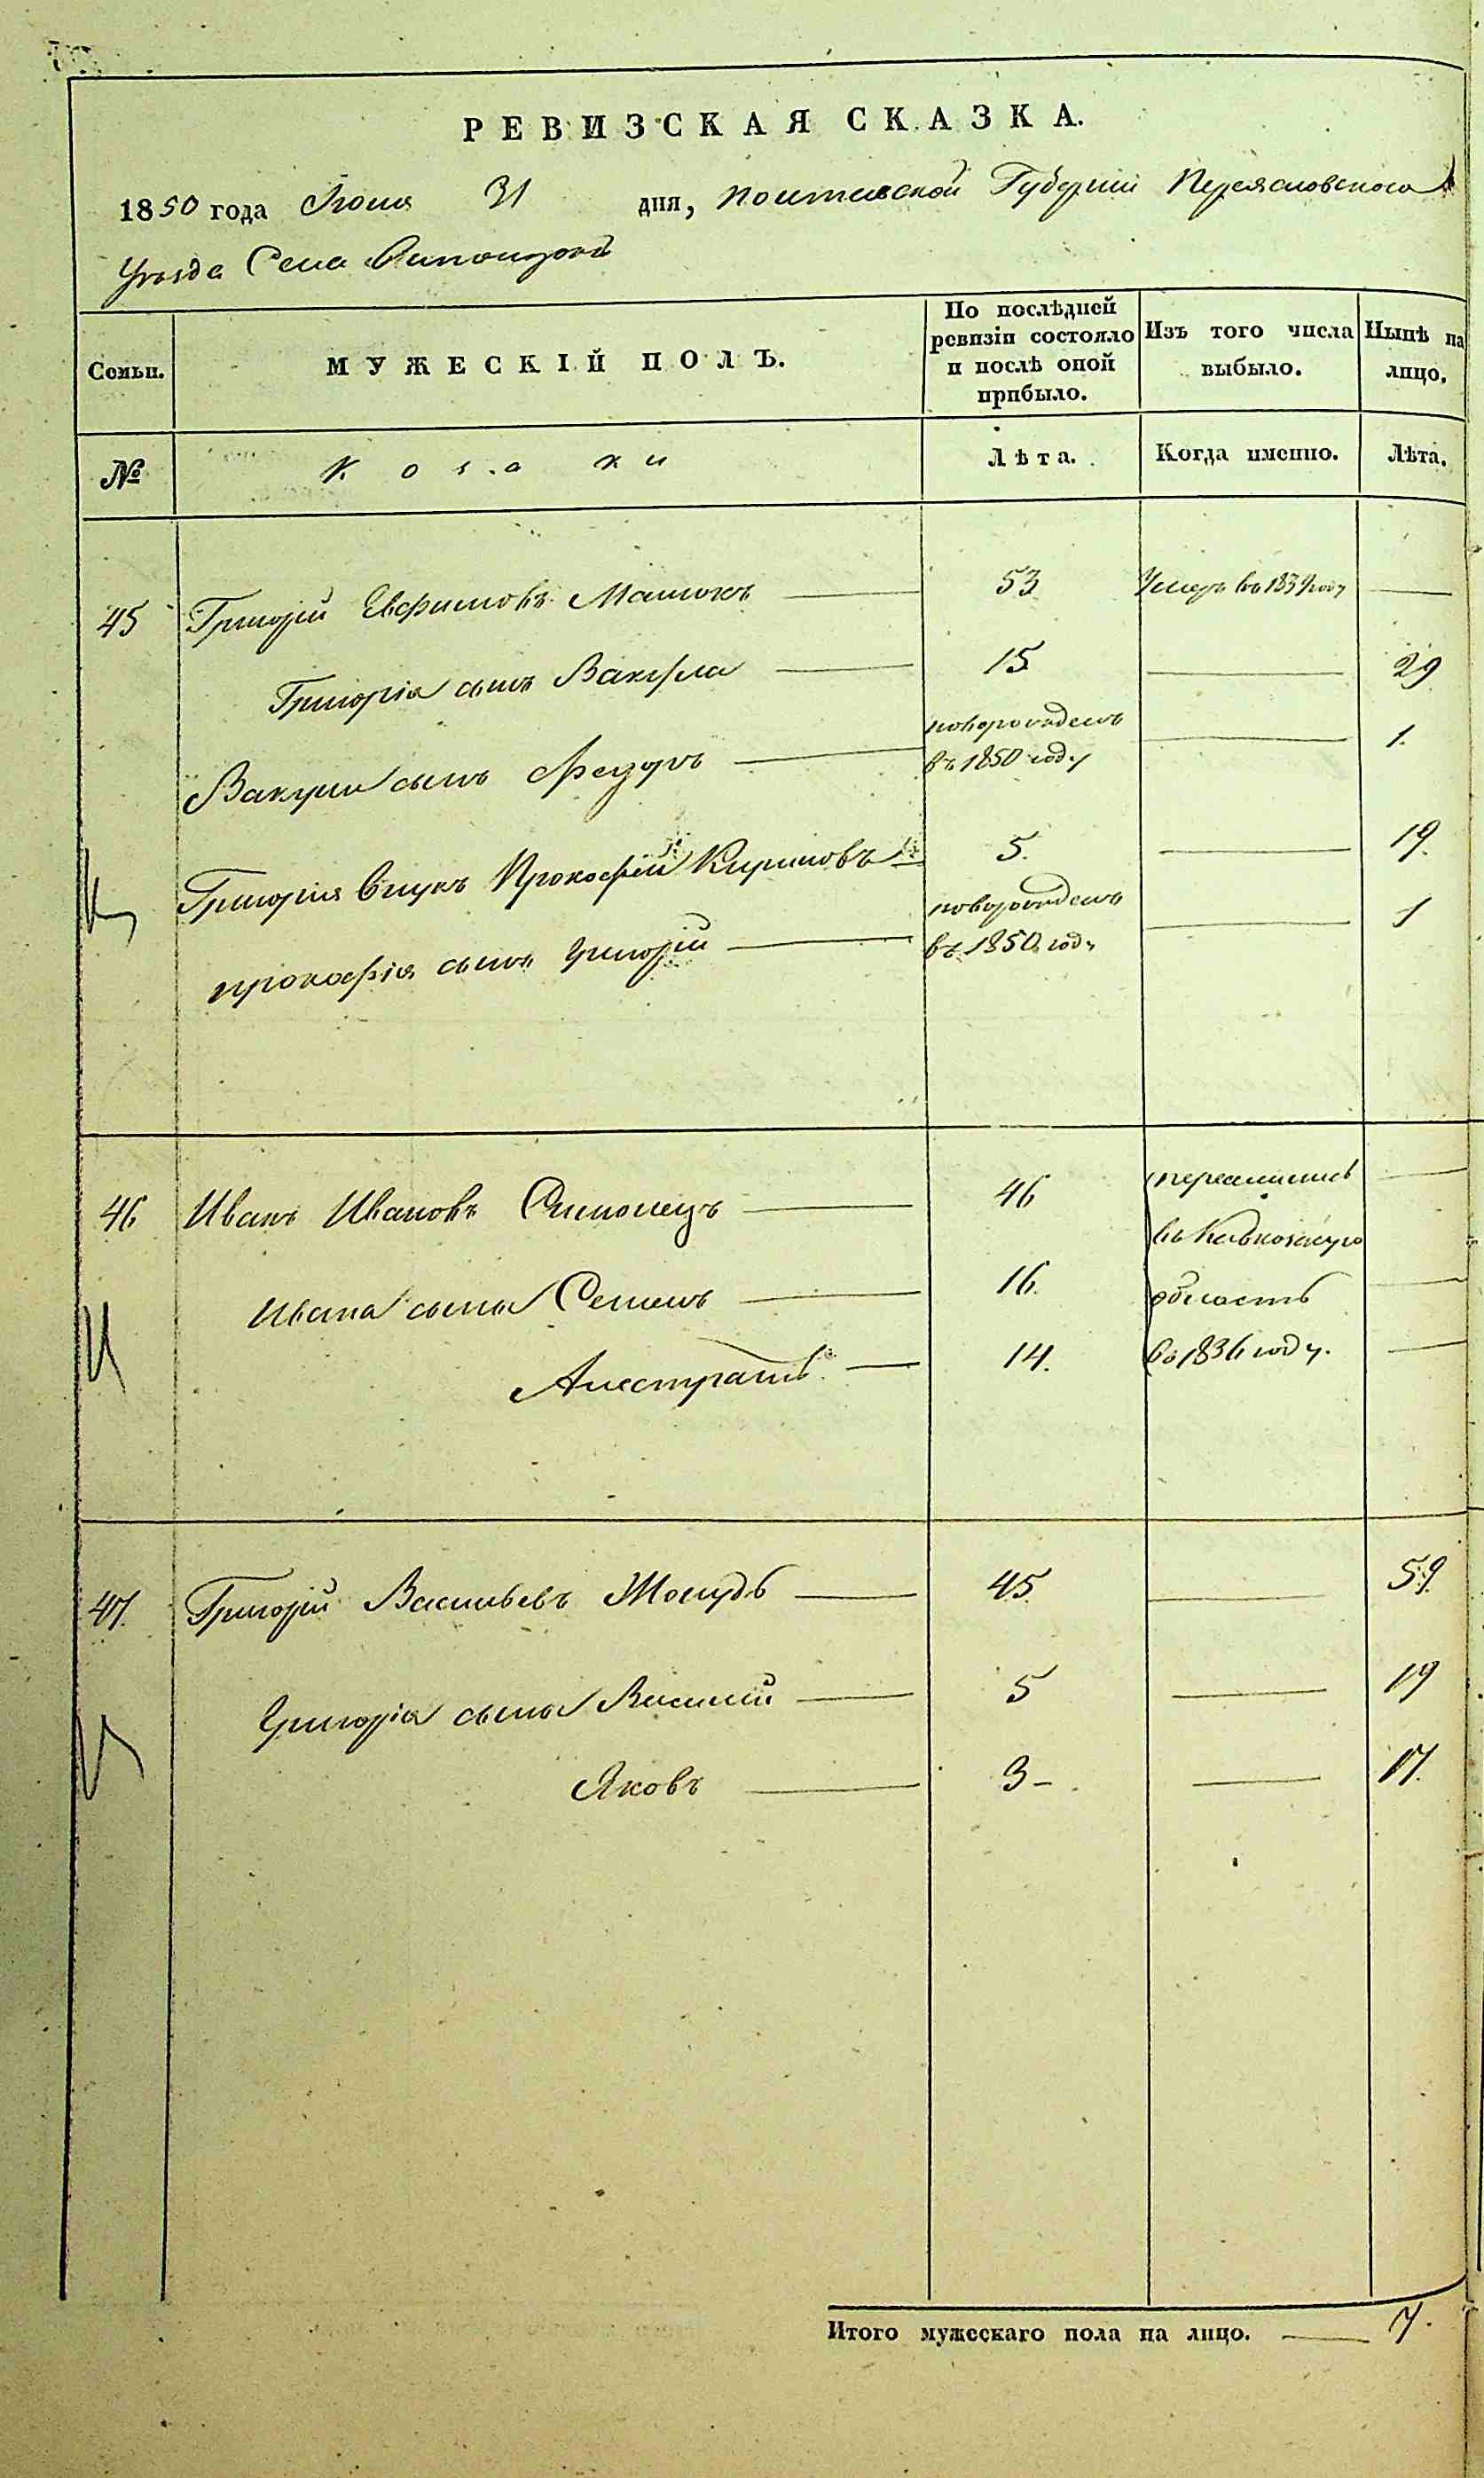 РЕВИЗСКАЯ СКАЗКА.
1850 года Іюня 31 дня, Полтавской Губерніи Переясловского
Уѣзда Села
Семьи.
МУЖЕСКІЙ ПОЛЪ.
По послѣдней ревизіи состояло и послѣ оной прибыло.
Изъ того числа выбыло.
Нынѣ на лицо.
№
Козаки
Лѣта.
Когда именно.
Лѣта.
45 Григорій Евфимовъ 53 Умеръ въ 1839 году —
Григорія сынъ Вакула 15 — 29
Вакулы сынъ Федоръ новорожденъ въ 1850 году — 1.
Григорія внукъ Прокофій Кириловъ 5. — 19.
Прокофія сынъ Григорій новорожденъ въ 1850 году — 1
46 Иванъ Ивановъ 46 переселились —
въ Кавказскую
Ивана сынья Семенъ 16 область —
Алистратъ 14. въ 1836 году. —
47. Григорій Васильевъ 45. — 59.
Григорія сынья Василий 5 — 19
Яковъ 3 — 17.
Итого мужескаго пола на лицо. — 7.